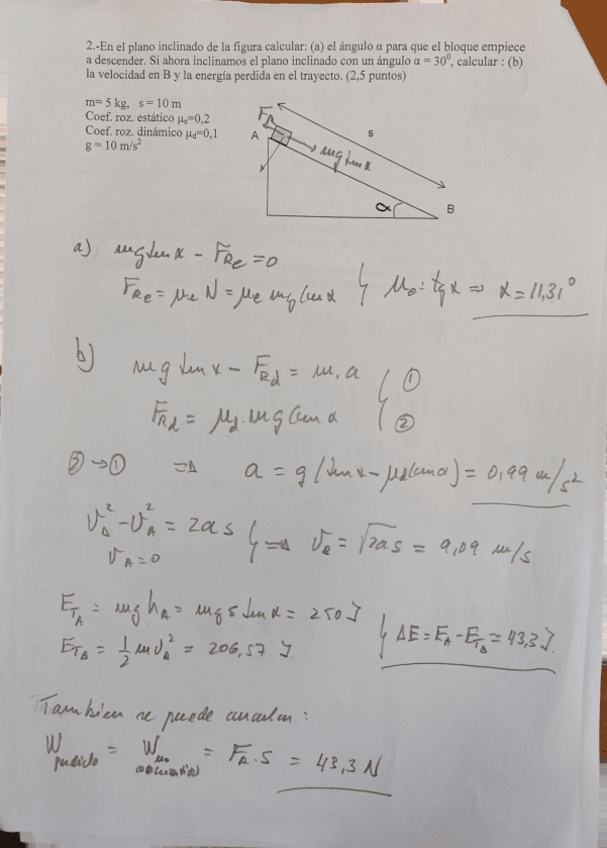 2.-En el plano inclinado de la figura calcular: (a) el ángulo α para que el bloque empiece
a descender. Si ahora inclinamos el plano inclinado con un ángulo α = 30⁰, calcular : (b)
la velocidad en B y la energía perdida en el trayecto. (2,5 puntos)
m= 5 kg, s = 10 m
Coef. roz. estático μₑ=0,2
Coef. roz. dinámico μd=0,1
g = 10 m/s²
F_R
A
s
mg sen α
α
B
a) mg sen α - F_Re = 0
F_Re = μe N = μe mg cos α } μe = tg α ⇒ α = 11,31°
b) mg sen α - F_Rd = m.a ①
F_Rd = μd. mg cos α ②
② → ① ⇒ a = g (sen α - μd cos α) = 0,99 m/s²
v_B² - v_A² = 2as
v_A = 0 } ⇒ v_B = √2as = 9,09 m/s
E_TA = mg h_A = mg s sen α = 250 J
E_TB = 1/2 m v_B² = 206,57 J. } ΔE = E_A - E_TB = 43,3 J.
Tambien se puede calcular :
W perdido = W no conservativas = F_R . s = 43,3 N